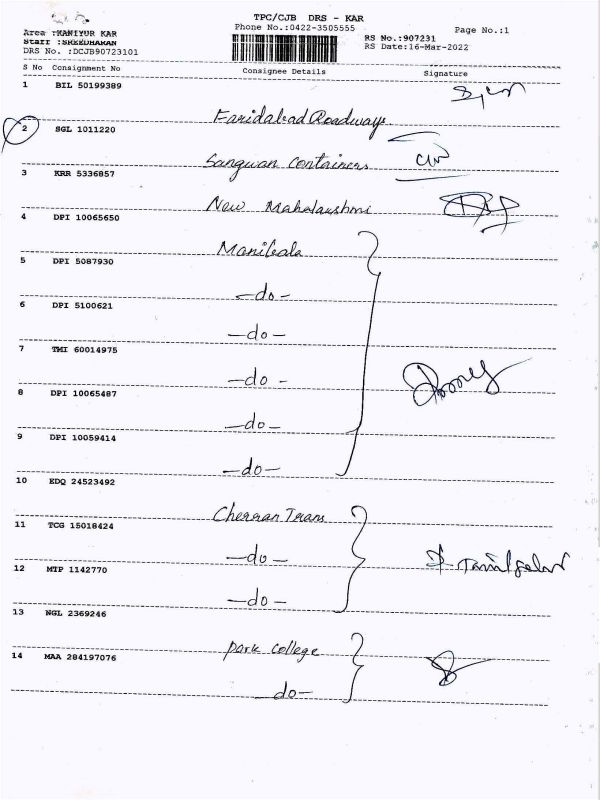 TPC/CJB DRS - KAR
Phone No.:0422-3505555
Page No.:1
Area :KANIYUR KAR
Staff :SREEDHARAN
DRS No. :DCJB90723101
RS No.:907231
RS Date:16-Mar-2022
S No Consignment No Consignee Details Signature
1 BIL 50199389
Faridabad Roadways
2 SGL 1011220
Sangwan Containers
3 KRR 5336857
New Mahalakshmi
4 DPI 10065650
Manikala
5 DPI 5087930
-do-
6 DPI 5100621
-do-
7 TMI 60014975
-do-
8 DPI 10065487
-do-
9 DPI 10059414
-do-
10 EDQ 24523492
Cherran Trans
11 TCG 15018424
-do-
12 MTP 1142770
-do-
13 NGL 2369246
park college
14 MAA 284197076
-do-